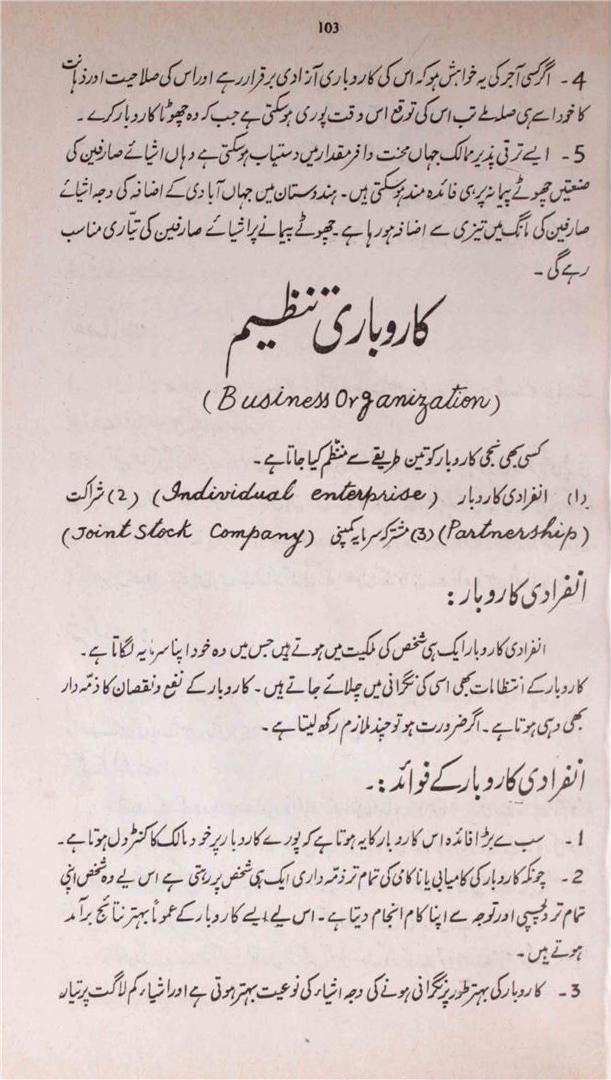 103
4 - اگر کسی آجر کی یہ خواہش ہو کہ اس کی کاروباری آزادی برقرار رہے اور اس کی صلاحیت اور ذہانت
کا خود اسے ہی صلہ ملے تب اس کی توقع اس وقت پوری ہو سکتی ہے جب کہ وہ چھوٹا کاروبار کرے ۔
5 - ایسے ترقی پذیر ممالک جہاں محنت وافر مقدار میں دستیاب ہو سکتی ہے وہاں اشیائے صارفین کی
صنعتیں چھوٹے پیمانہ پر ہی فائدہ مند ہو سکتی ہیں ۔ ہندوستان میں جہاں آبادی کے اضافہ کی وجہ اشیائے
صارفین کی مانگ میں تیزی سے اضافہ ہو رہا ہے ۔ چھوٹے پیمانے پر اشیائے صارفین کی تیّاری مناسب
رہے گی ۔
کاروباری تنظیم
(Business Organization)
کسی بھی نجی کاروبار کو تین طریقے سے منظّم کیا جاتا ہے ۔
(۱) انفرادی کاروبار (Individual enterprise) (2) شراکت
(Partnership) (3) مشترکہ سرمایہ کمپنی (Joint Stock Company)
انفرادی کاروبار :
انفرادی کاروبار ایک ہی شخص کی ملکیت میں ہوتے ہیں جس میں وہ خود اپنا سرمایہ لگاتا ہے ۔
کاروبار کے انتظامات بھی اسی کی نگرانی میں چلائے جاتے ہیں ۔ کاروبار کے نفع و نقصان کا ذمّہ دار
بھی وہی ہوتا ہے ۔ اگر ضرورت ہو تو چند ملازم رکھ لیتا ہے ۔
انفرادی کاروبار کے فوائد :۔
1 - سب سے بڑا فائدہ اس کاروبار کا یہ ہوتا ہے کہ پورے کاروبار پر خود مالک کا کنٹرول ہوتا ہے ۔
2 - چونکہ کاروبار کی کامیابی یا ناکامی کی تمام تر ذمّہ داری ایک ہی شخص پر رہتی ہے اس لیے وہ شخص اپنی
تمام تر دلچسپی اور توجہ سے اپنا کام انجام دیتا ہے ۔ اس لیے ایسے کاروبار کے عموماً بہتر نتائج برآمد
ہوتے ہیں ۔
3 - کاروبار کی بہتر طور پر نگرانی ہونے کی وجہ اشیاء کی نوعیت بہتر ہوتی ہے اور اشیاء کم لاگت پر تیار